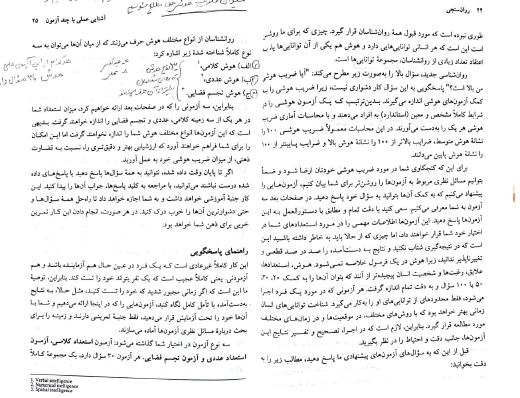 ۲۴ روان‌سنجی
طوری نبوده است که مورد قبول همهٔ روان‌شناسان قرار گیرد. چیزی که برای ما روشن
است این است که هر انسانی توانایی‌هایی دارد و هوش هم یکی از آن توانایی‌ها یا به
اعتقاد تعداد زیادی از روان‌شناسان، مجموعهٔ توانایی‌ها است.
روان‌شناسی جدید، سؤال بالا را به‌صورت زیر مطرح می‌کند: «آیا ضریب هوشی
من بالا است؟» پاسخگویی به این سؤال کار دشواری نیست، زیرا ضریب هوشی را به
کمک آزمون‌های هوشی اندازه می‌گیرند. بدین‌ترتیب که یک آزمون هوشی را در
شرایط کاملاً مشخص و معین (استاندارد) به افراد می‌دهند و با محاسبات آماری ضریب
هوشی هر یک را به‌دست می‌آورند. در این محاسبات معمولاً ضریب هوشی ۱۰۰ را
نشانهٔ هوش متوسط، ضرایب بالاتر از ۱۰۰ را نشانهٔ هوش بالا و ضرایب پایین‌تر از ۱۰۰
را نشانهٔ هوش پایین می‌دانند.
برای این که کنجکاوی شما در مورد ضریب هوشی خودتان ارضا شود و ضمناً
بتوانیم مسائل نظری مربوط به آزمون‌ها را روشن‌تر برای شما بیان کنیم، آزمون‌هایی را
پیشنهاد می‌کنیم که به کمک آن‌ها بتوانید به سؤال خود پاسخ دهید. در صفحات بعد سه
آزمون به شما معرفی می‌کنیم. سعی کنید با دقت تمام و مطابق با دستورالعمل به این
آزمون‌ها پاسخ دهید. این آزمون‌ها اطلاعات مهمی را در مورد استعدادهای شما در
اختیار خود شما قرار خواهند داد، اما چیزی که از حالا باید به خاطر داشته باشید این
است که در نتیجه‌گیری شتاب نکنید و نتایج به دست‌آمده را صد در صد قطعی و
تغییرناپذیر ندانید، زیرا هوش در یک فرمول خلاصه نمی‌شود. هوش، استعدادها،
علایق، رغبت‌ها و شخصیت انسان پیچیده‌تر از آنند که بتوان آن‌ها را به کمک ۲۰، ۳۰،
۵۰ یا ۱۰۰ سؤال و به دقت تمام اندازه گرفت. هر آزمونی که در مورد یک فرد اجرا
می‌شود، فقط محدوده‌ای از توانایی‌های او را به‌کار می‌گیرد. شناخت توانایی‌های انسان
زمانی بهتر خواهد بود که با روش‌های مختلف، در موقعیت‌ها و در زمان‌های مختلف
مورد مطالعه قرار گیرد. بنابراین، لازم است که در اجرا، تصحیح و تفسیر نتایج این
آزمون‌ها، جانب دقت و احتیاط را در نظر بگیرید.
قبل از این که به سؤال‌های آزمون‌های پیشنهادی ما پاسخ دهید، مطالب زیر را به
دقت بخوانید:
آشنایی عملی با چند آزمون ۲۵
روانشناسان از انواع مختلف هوش حرف می‌زنند که از میان آن‌ها می‌توان به سه
نوع کاملاً شناخته شدهٔ زیر اشاره کرد:
الف) هوش کلامی،¹
ب) هوش عددی،²
ج) هوش تجسم فضایی.³
بنابراین، سه آزمونی که در صفحات بعد ارائه خواهیم کرد، میزان استعداد شما
در هر یک از سه زمینه کلامی، عددی و تجسم فضایی را اندازه خواهند گرفت. بدیهی
است که این آزمون‌ها انواع مختلف هوش شما را اندازه نخواهند گرفت اما این امکان
را برای شما فراهم خواهند آورد که ارزشیابی بهتر و دقیق‌تری را، نسبت به قضاوت
ذهنی، از میزان ضریب هوشی خود به عمل آورید.
اگر تا پایان وقت داده شده، نتوانید به همهٔ سؤال‌ها پاسخ دهید یا پاسخ‌های داده
شده درست نباشند، می‌توانید، با مراجعه به کلید پاسخ‌ها، جواب آن‌ها را پیدا کنید. این
کار جنبهٔ آموزشی خواهد داشت و به شما اجازه خواهد داد تا راه‌حل همهٔ سؤال‌ها و
حتی دشوارترین آن‌ها را خوب درک کنید. در هر صورت، انجام دادن این کار تمرین
خوبی برای ذهن شما خواهد بود.
راهنمای پاسخگویی
این کار کاملاً غیرعادی است که یک فرد در عین حال هم آزماینده باشد و هم
آزمودنی. یعنی کاملاً عجیب است که یک نفر بتواند خود را تست کند. بنابراین، توصیهٔ
ما این است که اگر زمانی مجبور شدید که خود را تست کنید، مثل حالا، به نتایج
به‌دست‌آمده با تأمل کامل نگاه کنید. آزمون‌هایی را که در اینجا ارائه می‌دهیم و شما با
آن‌ها خود را تحت آزمایش قرار می‌دهید، فقط جنبهٔ تمرینی دارند و زمینه را برای
بحث دربارهٔ مسائل نظری آزمون‌ها آماده می‌سازند.
سه نوع آزمون در اختیار شما گذاشته می‌شود: آزمون استعداد کلامی، آزمون
استعداد عددی و آزمون تجسم فضایی. هر آزمون ۳۰ سؤال دارد، یک مجموعهٔ کاملاً
1. Verbal intelligence
2. Numerical intelligence
3. Spatial intelligence